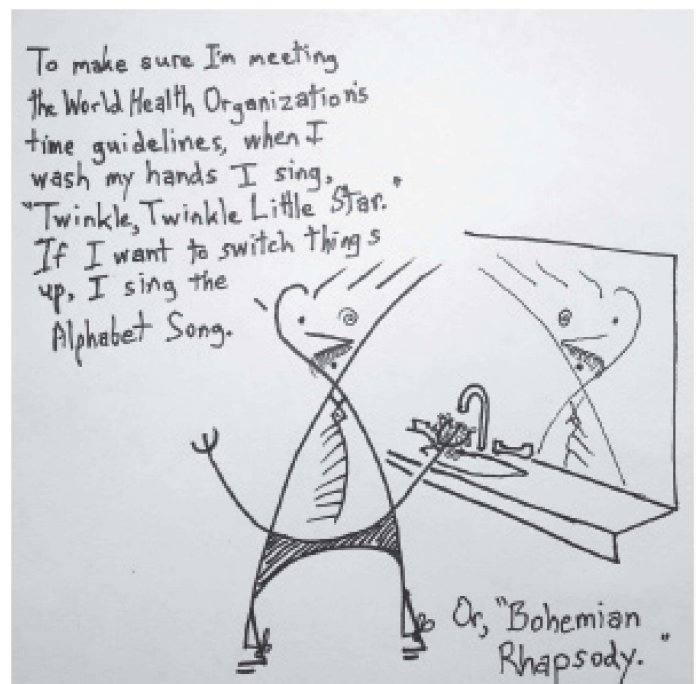 To make sure I'm meeting
the World Health Organization's
time guidelines, when I
wash my hands I sing,
"Twinkle, Twinkle Little Star."
If I want to switch things
up, I sing the
Alphabet Song.
Or, "Bohemian
Rhapsody."